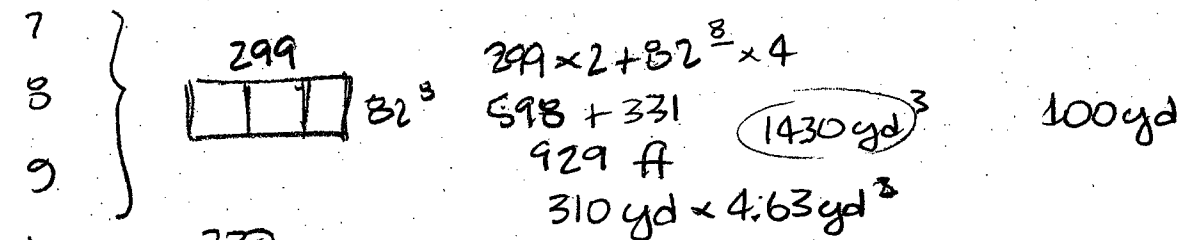 7
8
9
299
82⁸
299 × 2 + 82⁸ × 4
598 + 331
929 ft
310 yd × 4.63 yd³
1430 yd³
100 yd